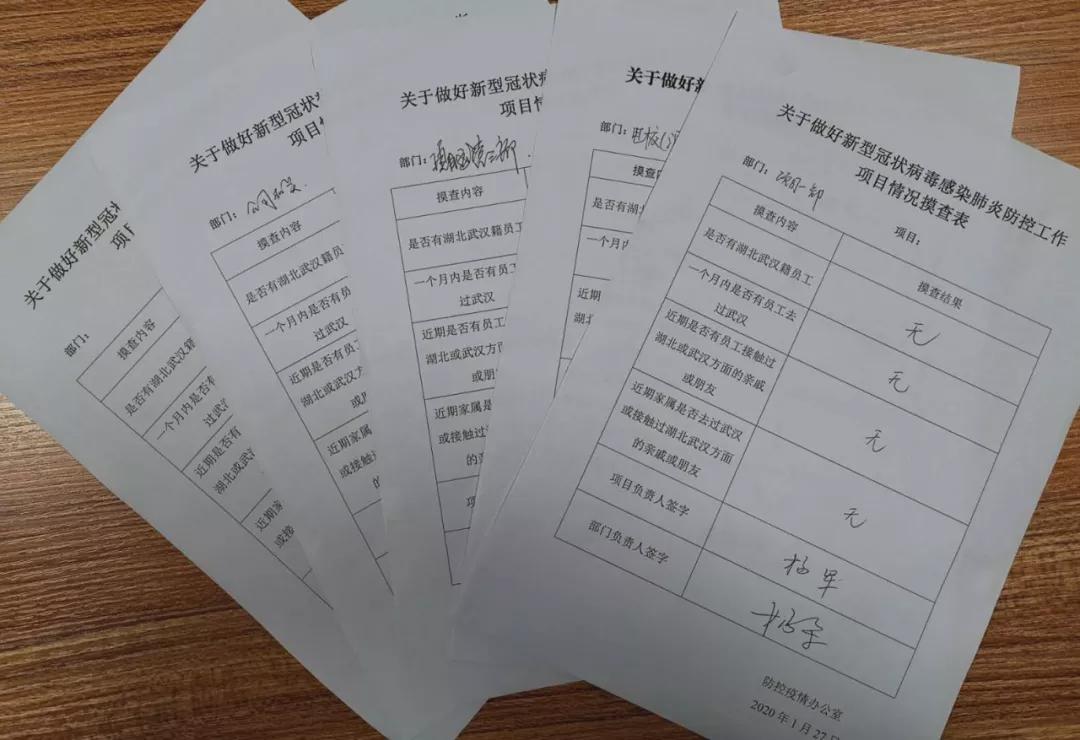 关于做好新型冠状
项目
部门：
摸查内容
是否有湖北武汉籍
一个月内是否有
过武汉
近期是否有
湖北或武汉
近期
或接
关于做好新型冠状
项目
部门：
摸查内容
是否有湖北武汉籍员
一个月内是否有员
过武汉
近期是否有员工
湖北或武汉方
近期家属
或接触
的
关于做好新型冠状病
项目情
部门：
摸查内容
是否有湖北武汉籍员工
一个月内是否有员工
过武汉
近期是否有员工接触
湖北或武汉方面
或朋
近期家属是
或接触过
的亲
项
关于做好新
部门：
摸查内
是否有湖
一个月内
过
近期
湖北
关于做好新型冠状病毒感染肺炎防控工作
项目情况摸查表
部门： 项目：
摸查内容 摸查结果
是否有湖北武汉籍员工 无
一个月内是否有员工去
过武汉 无
近期是否有员工接触过
湖北或武汉方面的亲戚
或朋友 无
近期家属是否去过武汉
或接触过湖北武汉方面
的亲戚或朋友 无
项目负责人签字
部门负责人签字
防控疫情办公室
2020年1月27日